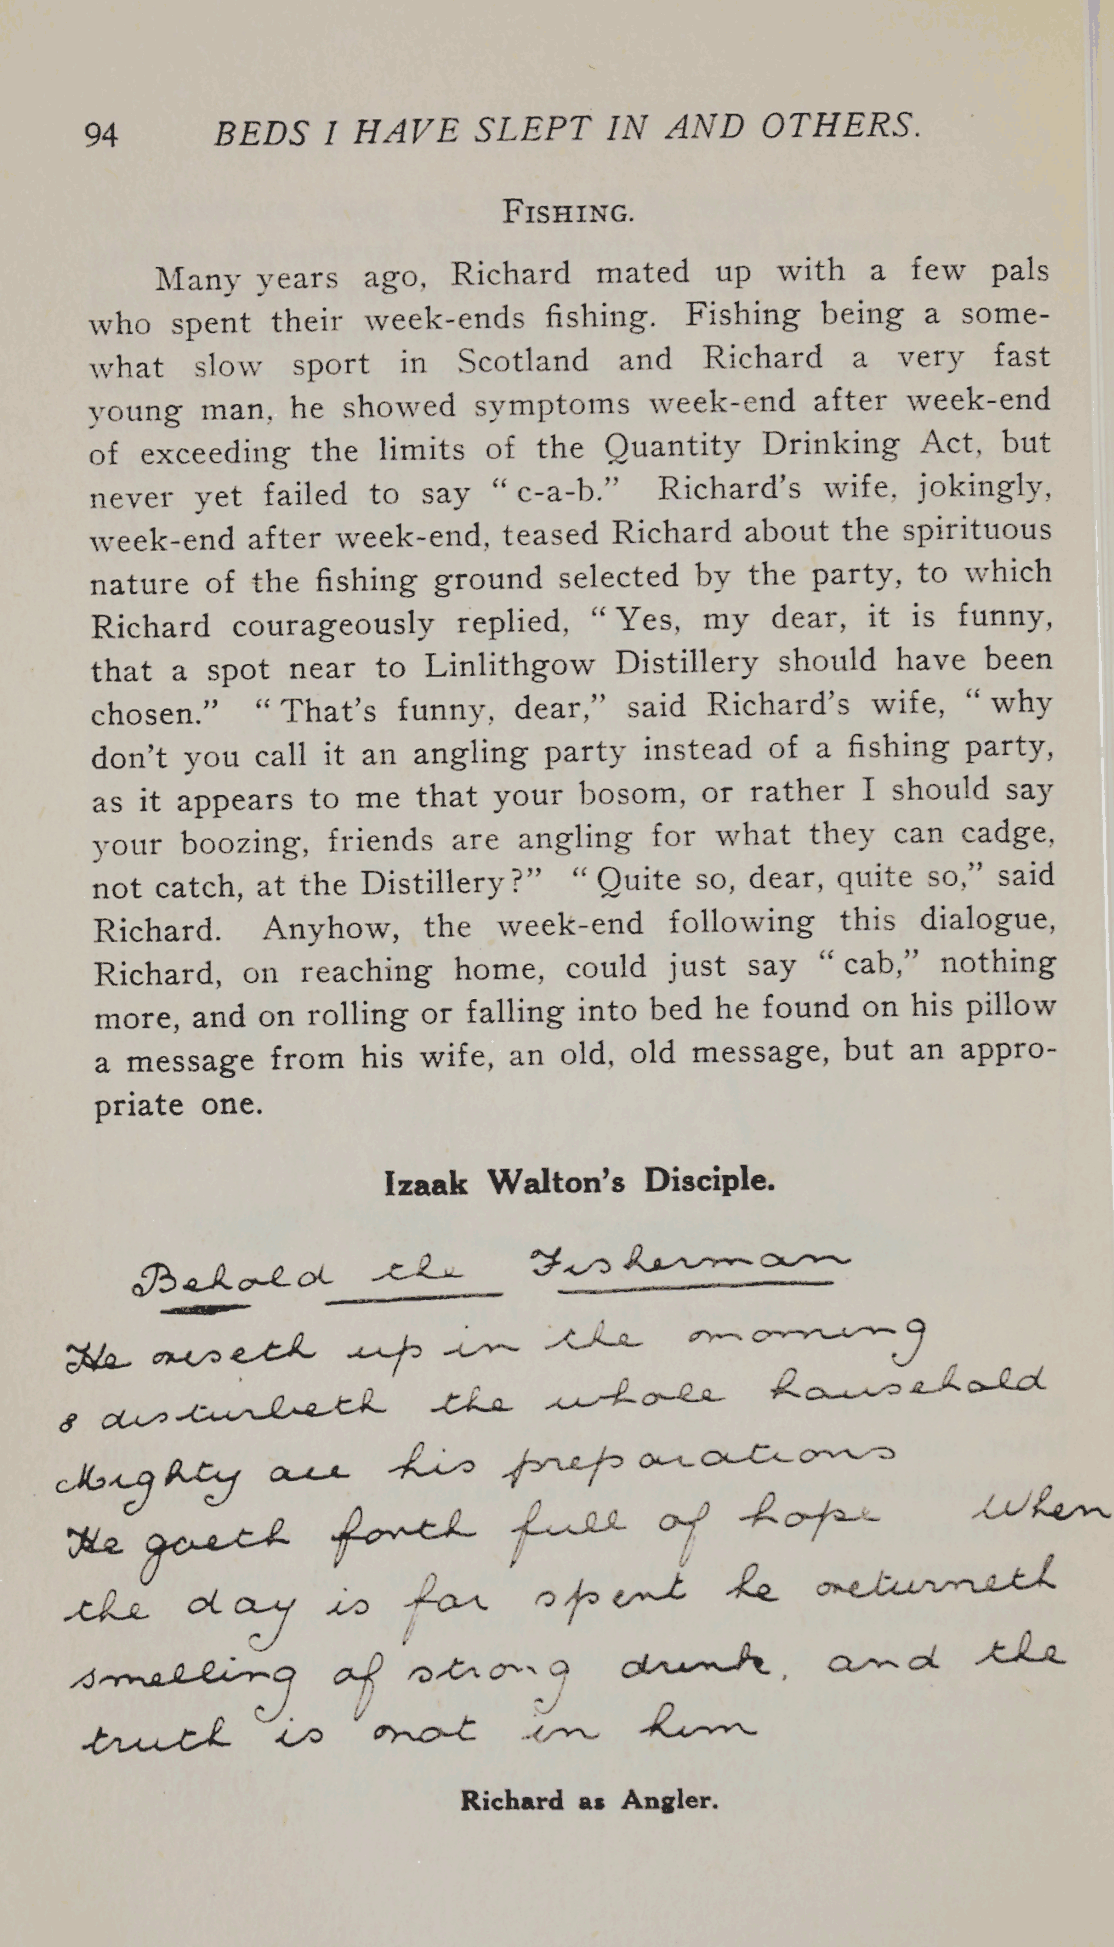 94 BEDS I HAVE SLEPT IN AND OTHERS.
FISHING.
Many years ago, Richard mated up with a few pals
who spent their week-ends fishing. Fishing being a some-
what slow sport in Scotland and Richard a very fast
young man, he showed symptoms week-end after week-end
of exceeding the limits of the Quantity Drinking Act, but
never yet failed to say “c-a-b.” Richard's wife, jokingly,
week-end after week-end, teased Richard about the spirituous
nature of the fishing ground selected by the party, to which
Richard courageously replied, “Yes, my dear, it is funny,
that a spot near to Linlithgow Distillery should have been
chosen.” “That's funny, dear,” said Richard's wife, “why
don't you call it an angling party instead of a fishing party,
as it appears to me that your bosom, or rather I should say
your boozing, friends are angling for what they can cadge,
not catch, at the Distillery?” “Quite so, dear, quite so,” said
Richard. Anyhow, the week-end following this dialogue,
Richard, on reaching home, could just say “cab,” nothing
more, and on rolling or falling into bed he found on his pillow
a message from his wife, an old, old message, but an appro-
priate one.
Izaak Walton's Disciple.
Behold the Fisherman
He riseth up in the morning
& disturbeth the whole household
Mighty are his preparations
He goeth forth full of hope When
the day is far spent he returneth
smelling of strong drink, and the
truth is not in him
Richard as Angler.